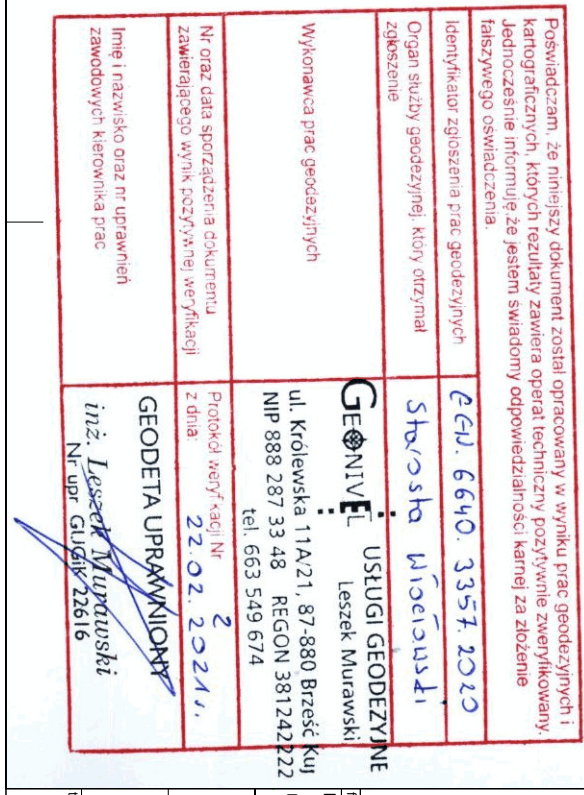 Poświadczam, że niniejszy dokument został opracowany w wyniku prac geodezyjnych i
kartograficznych, których rezultaty zawiera operat techniczny pozytywnie zweryfikowany.
Jednocześnie informuję,że jestem świadomy odpowiedzialności karnej za złożenie
fałszywego oświadczenia.
Identyfikator zgłoszenia prac geodezyjnych
GGN. 6640. 3357. 2020
Organ służby geodezyjnej, który otrzymał
zgłoszenie
Starosta Włocławski
Wykonawca prac geodezyjnych
GEONIVEL USŁUGI GEODEZYJNE
Leszek Murawski
ul. Królewska 11A/21, 87-880 Brześć Kuj
NIP 888 287 33 48 REGON 381242222
tel. 663 549 674
Nr oraz data sporządzenia dokumentu
zawierającego wynik pozytywnej weryfikacji
Protokół weryfikacji Nr 2
z dnia: 22.02.2021r.
Imię i nazwisko oraz nr uprawnień
zawodowych kierownika prac
GEODETA UPRAWNIONY
inż. Leszek Murawski
Nr upr. GUGiK 22616